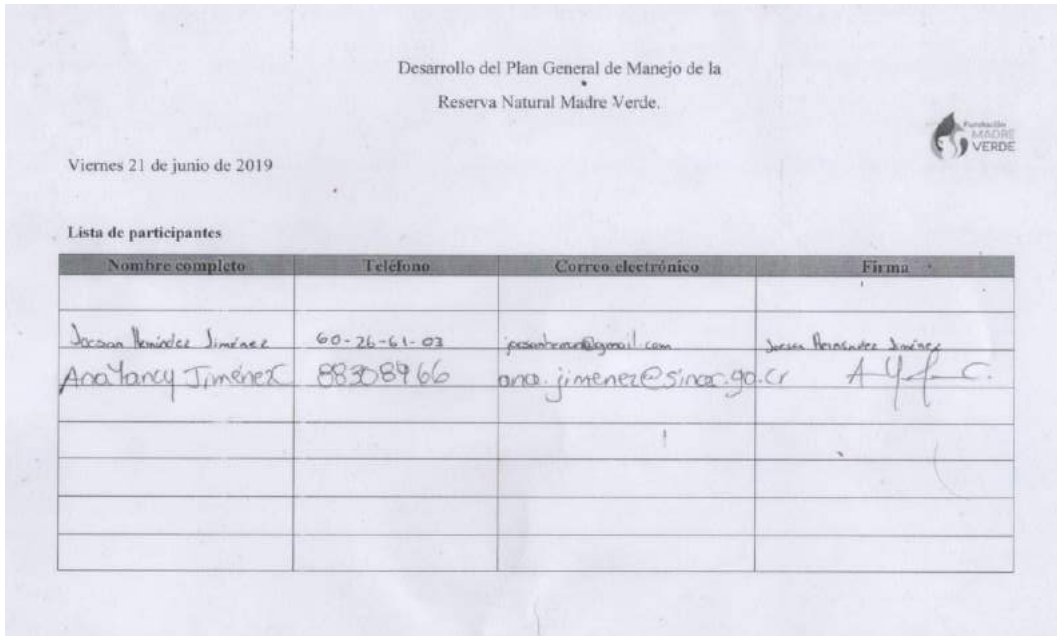 Desarrollo del Plan General de Manejo de la
Reserva Natural Madre Verde.
Fundación
MADRE
VERDE
Viernes 21 de junio de 2019
Lista de participantes
Nombre completo Teléfono Correo electrónico Firma
Jocsan Hernández Jiménez 60-26-61-03 Jocsan Hernández Jiménez
Ana Yancy Jiménez C 88308966 ana.jimenez@sinac.go.cr